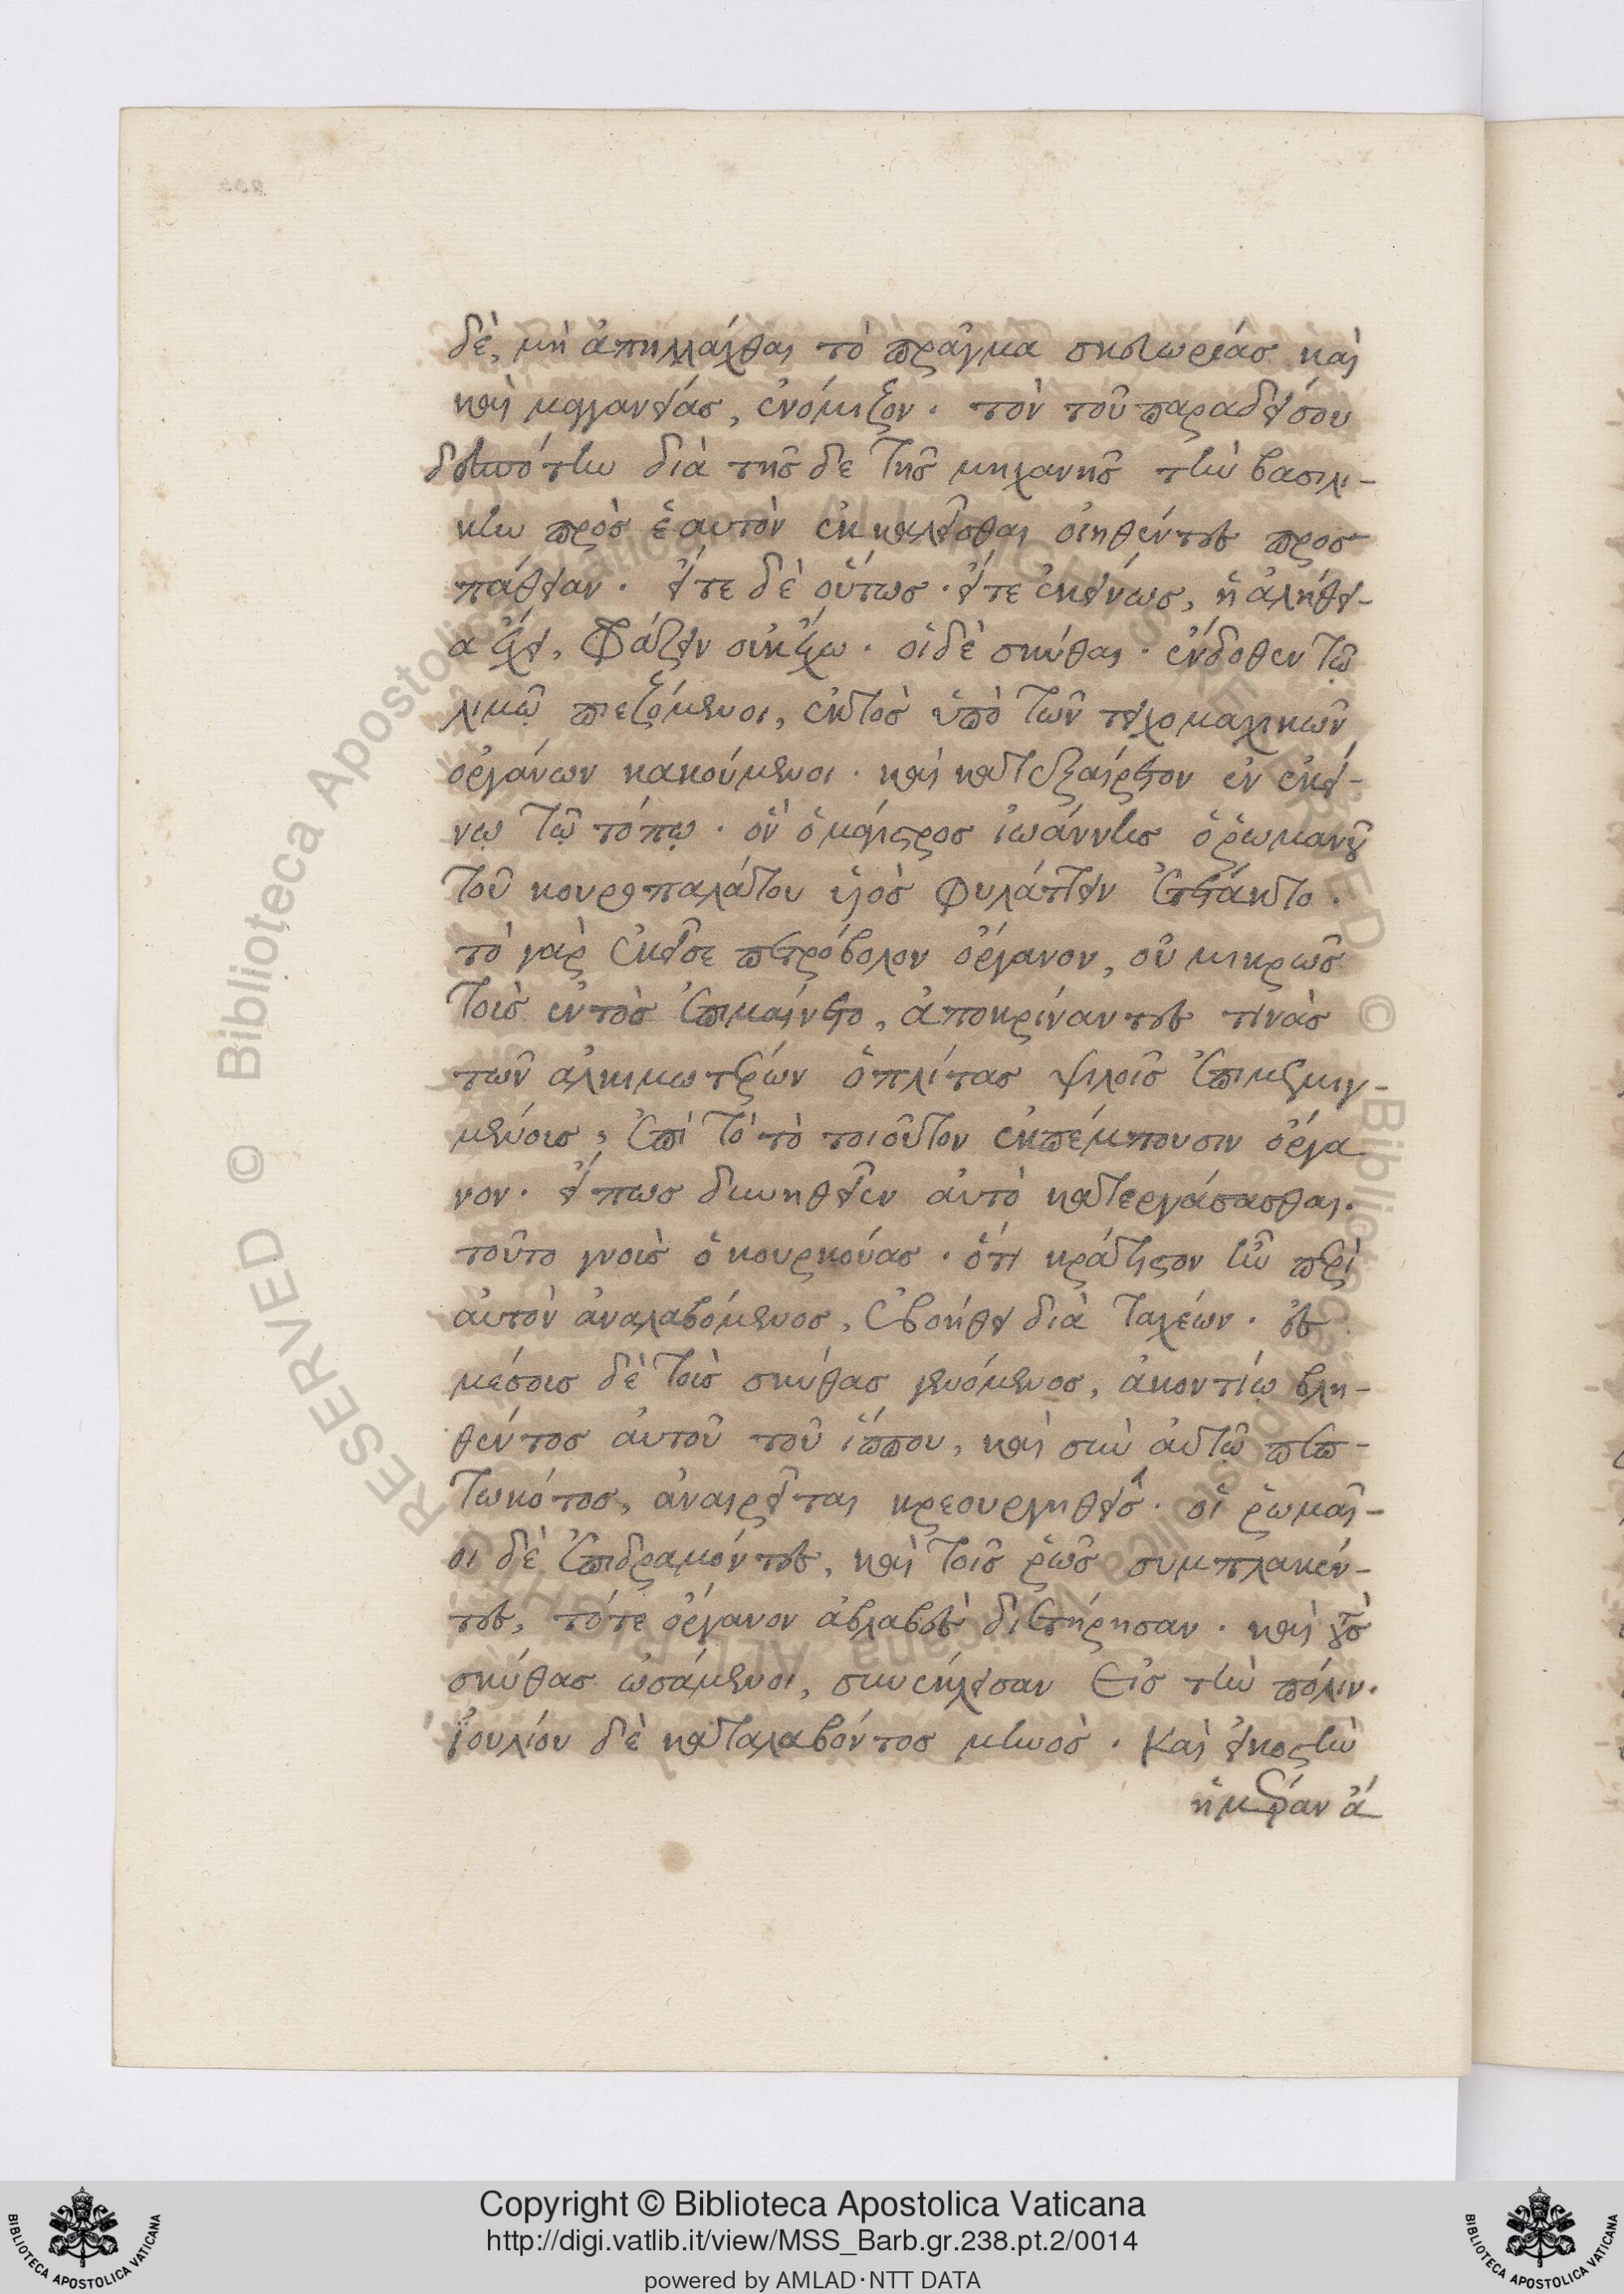 δὲ, μὴ ἀπηλλάχθαι τὸ πρᾶγμα σκαιωρίας καὶ
καὶ μαγγανείας, ἐνόμιζον. τὸν τοῦ παραδείσου
δεσπότην διὰ τῆς δε τῆς μηχανῆς τὴν βασιλι-
κὴν πρὸς ἑαυτὸν ἐκκαλεῖσθαι οἰηθέντες προσ
πάθειαν. εἴτε δὲ οὕτως. εἴτε ἐκείνως, ἡ ἀλήθει-
α ἔχει, φράζειν οὐκ ἔχω. οἱ δὲ σκύθαι. ἔνδοθεν τῷ
λιμῷ πιεζόμενοι, ἐκτὸς ὑπὸ τῶν τειχομαχικῶν
ὀργάνων κακούμενοι. καὶ κατεξαίρετον ἐν ἐκεί-
νῳ τῷ τόπῳ. ὃν ὁ μάγιστρος ἰωάννης ὁ ῥωμανοῦ
τοῦ κουροπαλάτου υἱὸς φυλάττειν ἐτέτακτο.
τὸ γὰρ ἐκεῖσε πετρόβολον ὄργανον, οὐ μικρῶς
τοὺς ἐντὸς ἐπημαίνετο, ἀποκρίναντες τινὰς
τῶν ἀλκιμωτέρων ὁπλίτας ψιλοῖς ἐπιμεμιγ-
μένοις, ἐπὶ τὸ τὸ τοιοῦτον ἐκπέμπουσιν ὄργα
νον. εἴπως δυνηθεῖεν αὐτὸ κατεργάσασθαι.
τοῦτο γνοὺς ὁ κουρκούας. ὅτι κράτιστον τῶν περὶ
αὐτὸν ἀναλαβόμενος, ἐβοήθει διὰ ταχέων. ἐς
μέσους δὲ τοὺς σκύθας γενόμενος, ἀκοντίῳ βλη-
θέντος αὐτοῦ τοῦ ἵππου, καὶ σὺν αὐτῷ πεπ-
τωκότος, ἀναιρεῖται κρεουργηθείς. οἱ ῥωμαῖ-
οι δὲ ἐπιδραμόντες, καὶ τοῖς ῥῶς συμπλακέν-
τες, τότε ὄργανον ἀβλαβὲς διετήρησαν. καὶ τοὺς
σκύθας ὠσάμενοι, συνέκλεισαν εἰς τὴν πόλιν.
ἰουλίου δὲ καταλαβόντος μηνὸς. καὶ εἰκοστὴν
ἡμέραν ἄ
Copyright © Biblioteca Apostolica Vaticana
http://digi.vatlib.it/view/MSS_Barb.gr.238.pt.2/0014
powered by AMLAD·NTT DATA